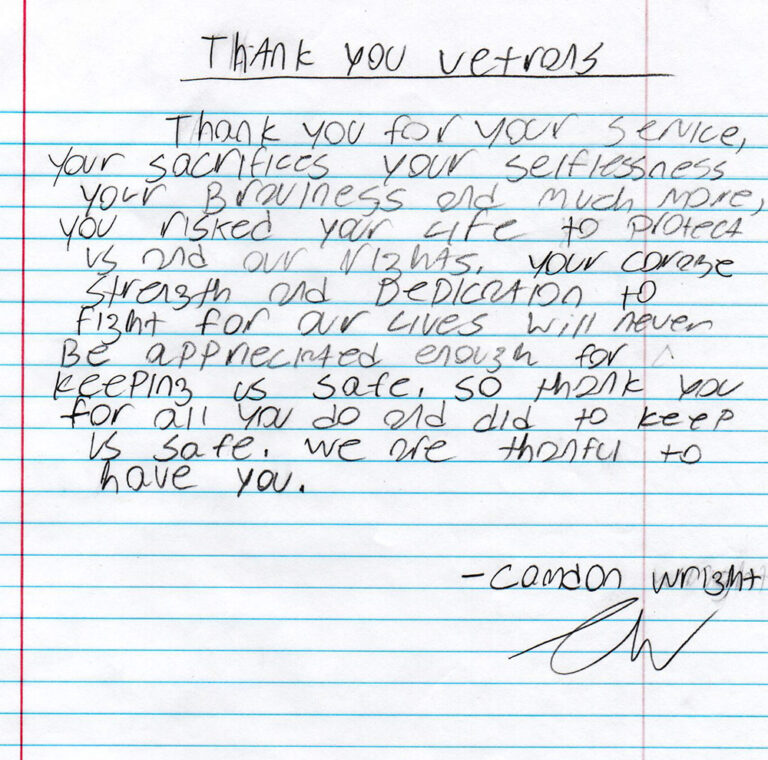 Thank you vetrans
Thank you for your service,
your sacrifices your selflessness
your Braviness and much more,
you risked your life to protect
us and our rights. your corage
strength and Dedication to
fight for our lives will never
Be appreciated enough for
keeping us safe. so thank you
for all you do and did to keep
us safe. we are thanful to
have you.
- Camdon Wright
CW